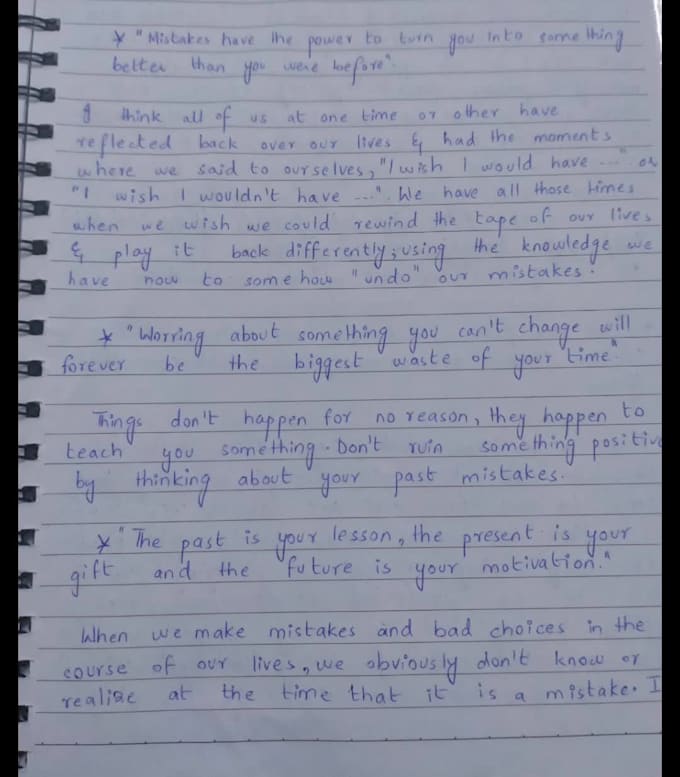 * "Mistakes have the power to turn you into something
better than you were before".
I think all of us at one time or other have
reflected back over our lives & had the moments
where we said to ourselves, "I wish I would have ..." or
"I wish I wouldn't have ...". We have all those times
when we wish we could rewind the tape of our lives
& play it back differently; using the knowledge we
have now to somehow "undo" our mistakes.
* "Worring about something you can't change will
forever be the biggest waste of your time"
Things don't happen for no reason, they happen to
teach you something. Don't ruin something positive
by thinking about your past mistakes.
* "The past is your lesson, the present is your
gift and the future is your motivation."
When we make mistakes and bad choices in the
course of our lives, we obviously don't know or
realize at the time that it is a mistake. I